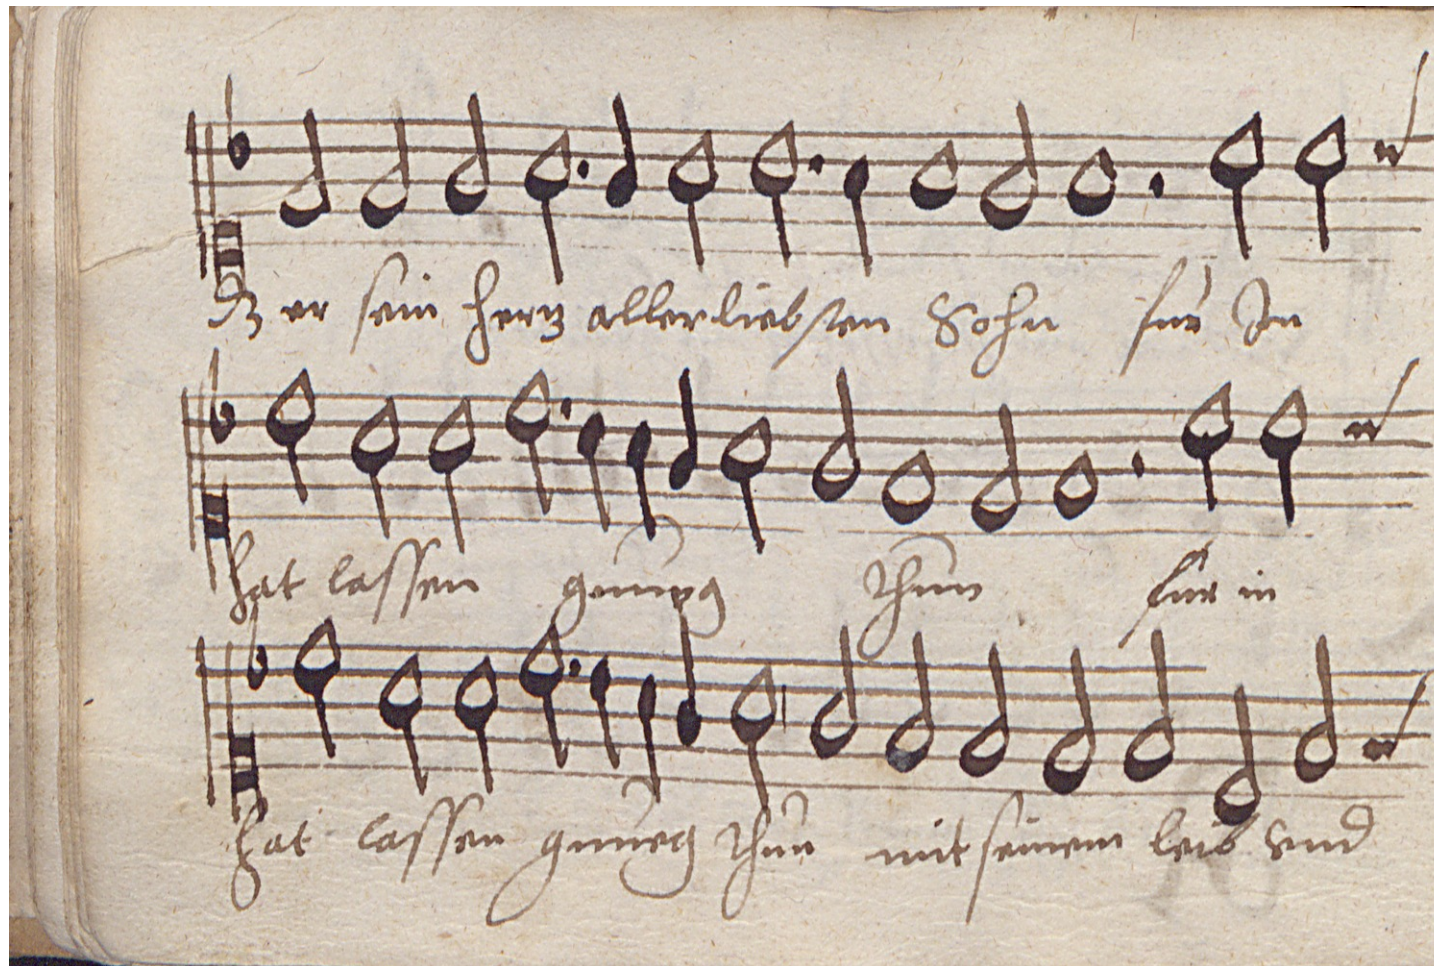 dz er sein hertz allerliebsten Sohn für In
hat lassen gnueg thun für in
hat lassen gnueg thun mit seinem leib vnd